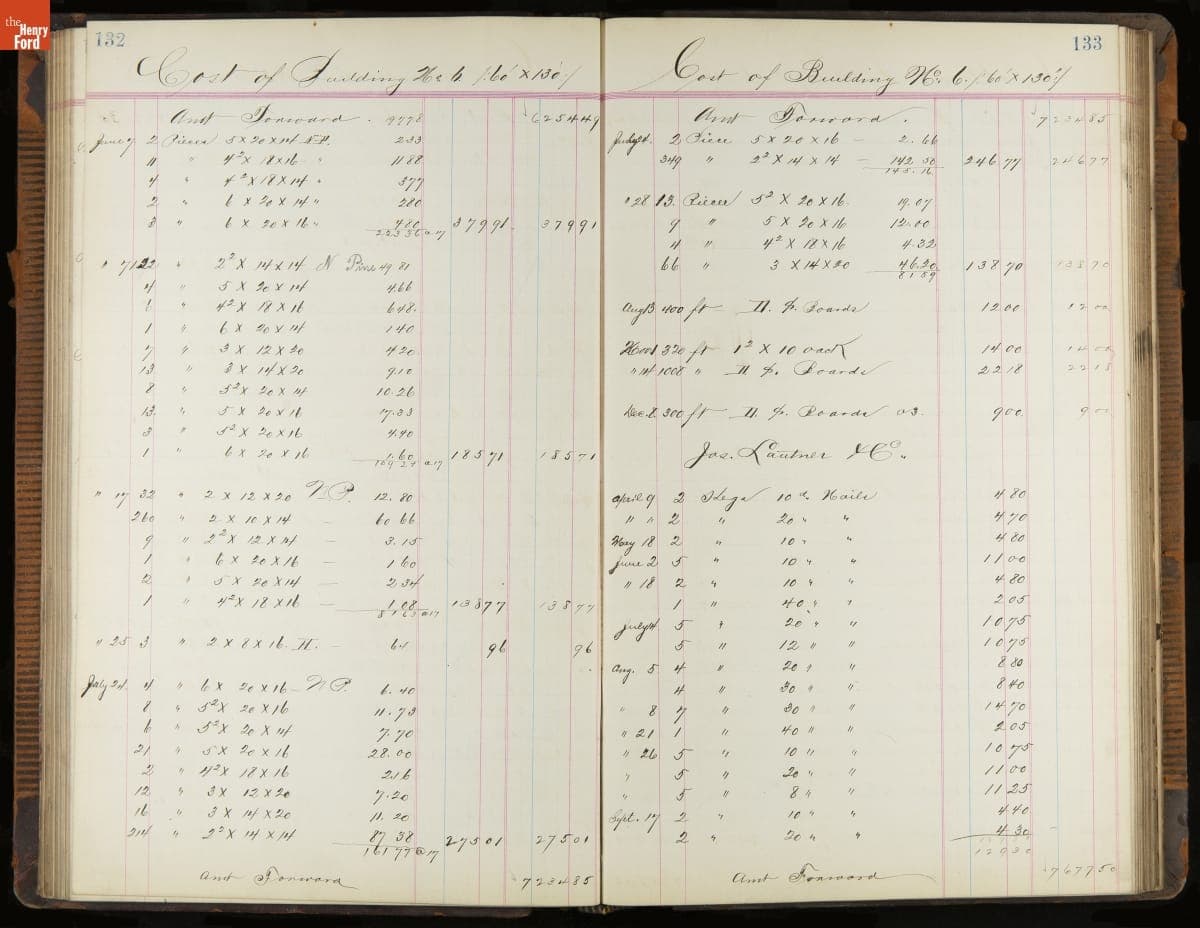 the Henry Ford
132
Cost of Building No 6 /:60' x 130':/
Amt Forward. 9778 625449
June 7 2 Pieces 5 x 20 x 14 N.P. 233
11 " 4² x 18 x 16 " 1188
4 " 4² x 18 x 14 " 377
2 " 6 x 20 x 14 " 280
3 " 6 x 20 x 16 " 480 37991 37991
22336 @ 17
" 7 122 " 2² x 14 x 14 N Pine 49 81
4 " 5 x 20 x 14 4.66
6 " 4² x 18 x 16 648
1 " 6 x 20 x 14 140
7 " 3 x 12 x 20 420
13 " 3 x 14 x 20 910
8 " 5² x 20 x 14 10.26
13 " 5 x 20 x 16 17.33
3 " 5² x 20 x 16 4.40
1 " 6 x 20 x 16 1.60 18571 18571
109 24 @ 17
" 17 32 " 2 x 12 x 20 N.P. 12.80
260 " 2 x 10 x 14 — 60 66
9 " 2² x 12 x 14 — 3.15
1 " 6 x 20 x 16 — 1 60
2 " 5 x 20 x 14 — 2.34
1 " 4² x 18 x 16 — 1.08 13877 13877
81 63 @ 17
" 25 3 " 2 x 8 x 16 H. — 64 96 96
July 24 4 " 6 x 20 x 16 — N.P. 6.40
8 " 5² x 20 x 16 11.73
6 " 5² x 20 x 14 7.70
21 " 5 x 20 x 16 28.00
2 " 4² x 18 x 16 2.16
12 " 3 x 12 x 20 7.20
16 " 3 x 14 x 20 11.20
214 " 2² x 14 x 14 87 38 27501 27501
161 77 @ 17
Amt Forward 723485
133
Cost of Building No. 6. /:60' x 130':/
Amt Forward. 723485
July 24 2 Piece 5 x 20 x 16 — 2.66
349 " 2² x 14 x 14 — 142.50 24677 24677
145.16
" 28 13 Pieces 5² x 20 x 16 19.07
9 " 5 x 20 x 16 12.00
4 " 4² x 18 x 16 4.32
66 " 3 x 14 x 20 46.20 13870 13870
81 59
Aug 13 400 ft H. P. Boards 1200 1200
Nov 1 320 ft 1² x 10 1400 1400
" 14 1008 " H P. Boards 2218 2218
Dec. 2 300 ft H. P. Boards 03. 900 900
Jos. Lautner & Co.
April 9 2 Kegs 10 d. Nails 4 80
" " 2 " 20 " " 4 70
May 18 2 " 10 " " 4 80
June 2 5 " 10 " " 11 00
" 18 2 " 10 " " 4 80
1 " 40 " " 2 05
July 14 5 " 20 " " 10 75
5 " 12 " " 10 75
Aug. 5 4 " 20 " " 8 80
4 " 30 " " 8 40
" 8 7 " 30 " " 14 70
" 21 1 " 40 " " 2 05
" 26 5 " 10 " " 10 75
" 5 " 20 " " 11 00
" 5 " 8 " " 11 25
Sept. 17 2 " 10 " " 4 40
2 " 20 " " 4 30
129 30
Amt Forward 767750